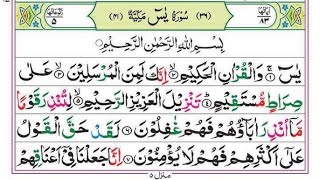 اٰيَاتُهَا ٨٣ (٣٦) سُوْرَةُ يٰسٓ مَكِّيَّةٌ (٤١) ٥
بِسْمِ اللّٰهِ الرَّحْمٰنِ الرَّحِيْمِ
يٰسٓ ۚ وَالْقُرْاٰنِ الْحَكِيْمِ ۙ اِنَّكَ لَمِنَ الْمُرْسَلِيْنَ ۙ عَلٰى
صِرَاطٍ مُّسْتَقِيْمٍ ؕ تَنْزِيْلَ الْعَزِيْزِ الرَّحِيْمِ ۙ لِتُنْذِرَ قَوْمًا
مَّاۤ اُنْذِرَ اٰبَآؤُهُمْ فَهُمْ غٰفِلُوْنَ لَقَدْ حَقَّ الْقَوْلُ
عَلٰۤى اَكْثَرِهِمْ فَهُمْ لَا يُؤْمِنُوْنَ اِنَّا جَعَلْنَا فِيْۤ اَعْنَاقِهِمْ
منزل ٥